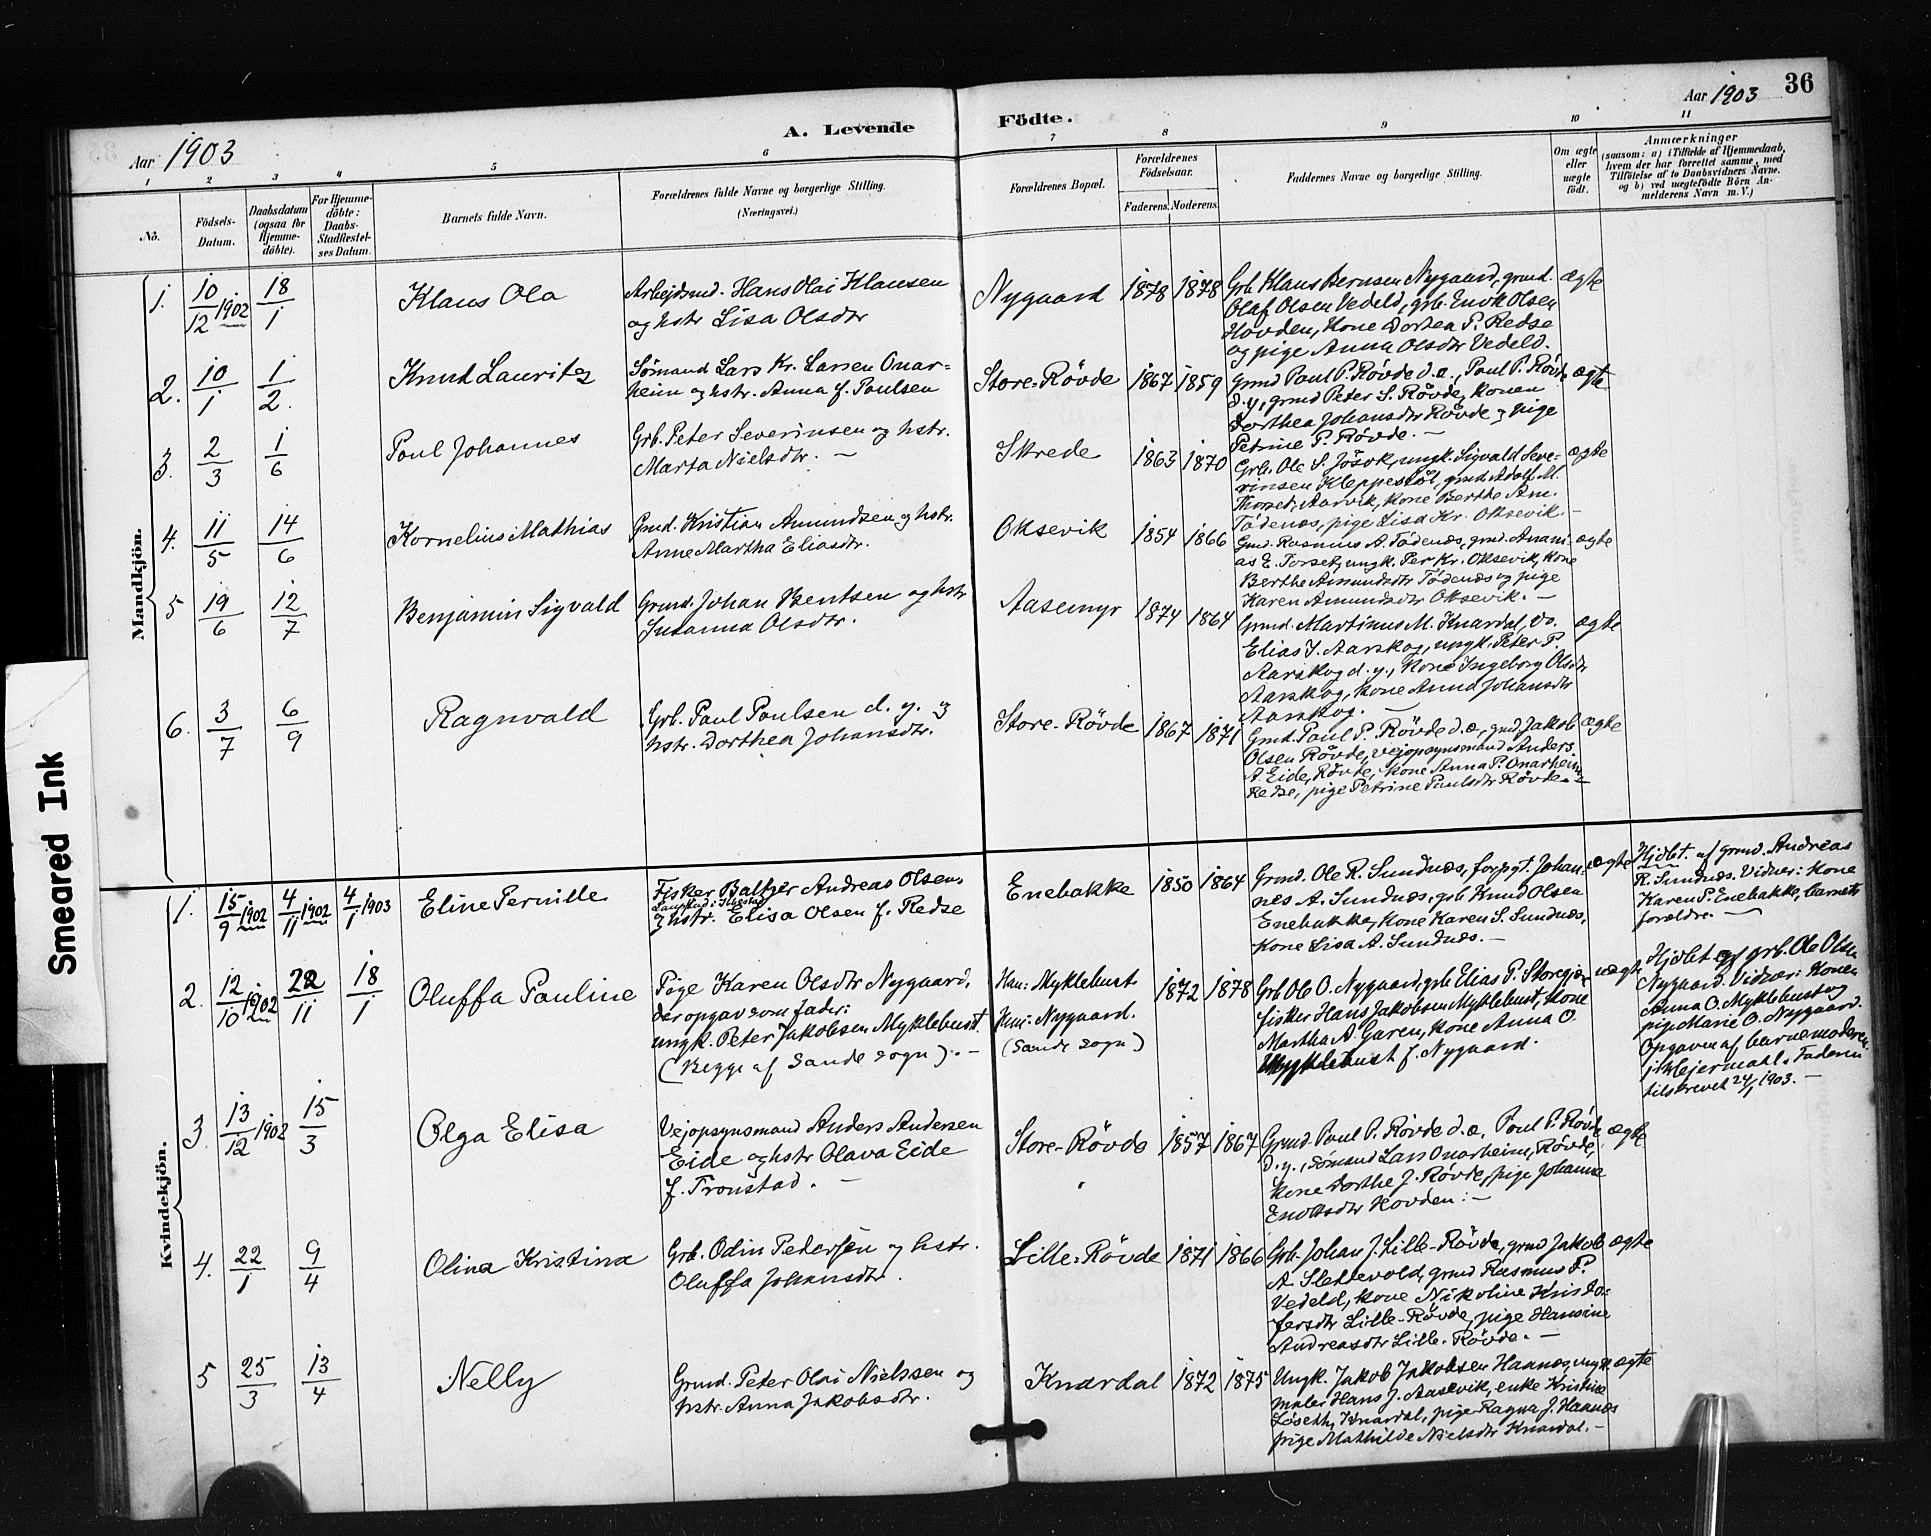 36
Aar 1903
A. Levende Födte.
Aar 1903
1 2 3 4 5 6 7 8 9 10 11
No.
Födsels-
Datum.
Daabsdatum
(ogsaa for
Hjemme-
döbte).
For Hjemme-
döbte:
Daabs-
Stadfæstel-
ses Datum.
Barnets fulde Navn.
Forældrenes fulde Navne og borgerlige Stilling.
(Næringsvei.)
Forældrenes Bopæl.
Forældrenes
Födselsaar.
Faderens. Moderens.
Faddernes Navne og borgerlige Stilling.
Om ægte
eller
uægte
födt.
Anmærkninger
(saasom: a) i Tilfælde af Hjemmedaab,
hvem der har forrettet samme, med
Tilföielse af to Daabsvidners Navne,
og b) ved uægtefödte Börn An-
melderens Navn m. V.)
Mandkjön.
1. 10/12 1902 18/1 Klaus Ola
Arbejdsmd. Hans Olai Klausen
og hstr Lisa Olsdtr
Nygaard 1878 1878
Grb. Klaus Bernsen Nygaard, grmd.
Olaf Olsen Vedeld, grb. Enok Olsen
Hovden, Kone Dorthea P. Redse
og pige Anna Olsdtr Vedeld.
ægte
2. 10/1 1/2. Knut Lauritz
Sømand Lars Kr. Larsen Onar-
heim og hstr. Anna f. Paulsen
Store-Røvde 1867 1859
Grmd Paul P. Røvde d.æ., Paul P. Røvde
d.y., grmd Peter S. Røvde, Konen
Dorthea Johansdtr Røvde og pige
Petrine P. Røvde. —
ægte
3. 2/3 1/6 Paul Johannes
Grb. Peter Severinsen og hstr.
Marta Nielsdtr. —
Skrede 1863 1870
Grb. Ole S. Jösok, ungk. Sigvald Seve-
rinsen Kleppestöl, grmd. Adolf M.
Thorset, Aarvik, Kone Berthe Am.
Tødenæs, pige Lisa Kr. Oksevik. —
ægte
4. 11/5 14/6 Kornelius Mathias
Grmd. Kristian Amundsen og hstr.
Anne Martha Eliasdtr.
Oksevik 1854 1866
Grmd. Rasmus A. Tödenæs, grmd. Anani-
as E. Torset, ungk. Per Kr. Oksevik, Kone
Berthe Amundsdtr Tødenæs og pige
Karen Amundsdtr Oksevik. —
ægte
5 19/6 12/7 Benjamin Sigvald
Grmd. Johan Bentsen og hstr
Susanna Olsdtr.
Aasemyr 1874 1864
Grmd. Martinus M. Knardal, do.
Elias J. Aarskog, ungk. Peter P.
Aarskog d.y., Kone Ingeborg Olsdtr
Aarskog, Kone Anna Johansdtr
Aarskog. —
ægte
6. 3/7 6/9 Ragnvald
Grb. Paul Paulsen d.y. og
hstr. Dorthea Johansdtr.
Store-Røvde 1867 1871
Grmd. Paul P. Røvde d.æ., grmd Jakob
Olsen Røvde, vejopsynsmand Anders
A. Eide, Røvde, Kone Anna P. Onarheim
Redse, pige Petrine Paulsdtr Røvde. —
ægte
Kvindekjön.
1. 15/9 1902 4/11 1902 4/1 1903 Eline Pernille
Fisker Baltzer Andreas Olsen,
og hstr. Elisa Olsen f. Redse
Enebakke 1850 1864
Grmd. Ole R. Sundnæs, forpgt. Johan-
nes A. Sundnæs, grb Knud Olsen
Enebakke, Kone Karen S. Sundnæs,
Kone Lisa A. Sundnæs. —
ægte
Hjdbt. af grmd. Andreas
R. Sundnæs. Vidner: Kone
Karen P. Enebakke, barnets
forældre. —
2. 12/10 1902 22/11 18/1 Oluffa Pauline
Pige Karen Olsdtr Nygaard,
der opgav som fader:
ungk. Peter Jakobsen Myklebust.
(Begge af Sande sogn). —
Han: Myklebust
Hun: Nygaard.
(Sande sogn)
1872 1878
Grb Ole O. Nygaard, grb Elias P. Storegjær
fisker Hans Jakobsen Myklebust, Kone
Martha A. Garen, Kone Anna O.
Myklebust f. Nygaard.
uægte
Hjdbt af grb. Ole Olsen
Nygaard. Vidner: Konen
Anna O. Myklebust og
pige Marie O. Nygaard.
Opgaven af barnemoderen
i Faderen
tilskrevet 24/1 1903. —
3. 13/12 1902 15/3 Olga Elisa
Vejopsynsmand Anders Andersen
Eide og hstr Olava Eide
f. Tronstad. —
Store-Røvde 1857 1867
Grmd. Paul P. Røvde d.æ., Paul P. Røvde
d.y., sømand Lars Onarheim, Røvde,
Kone Dorthe J. Røvde, pige Johanna
Enoksdtr Hovden: —
ægte
4. 22/1 9/4 Olina Kristina
Grb. Odin Pedersen og hstr.
Oluffa Johansdtr.
Lille-Røvde 1871 1866
Grb. Johan J. Lille-Røvde, grmd Jakob
A. Slettevold, grmd Rasmus P.
Vedeld, Kone Nikoline Kristo-
fersdtr Lille-Røvde, pige Hansine
Andreasdtr Lille-Røvde. —
ægte
5 25/3 13/4 Nelly
Grmd. Peter Olai Nielssen og
hstr. Anna Jakobsdtr.
Knardal 1872 1875
Ungk. Jakob Jakobsen Haanæs, ungk
maler Hans J. Aasevik, enke Kristine
Løseth, Knardal, pige Ragna J. Haanæs
pige Mathilde Nielsdtr Knardal. —
ægte
Smeared Ink